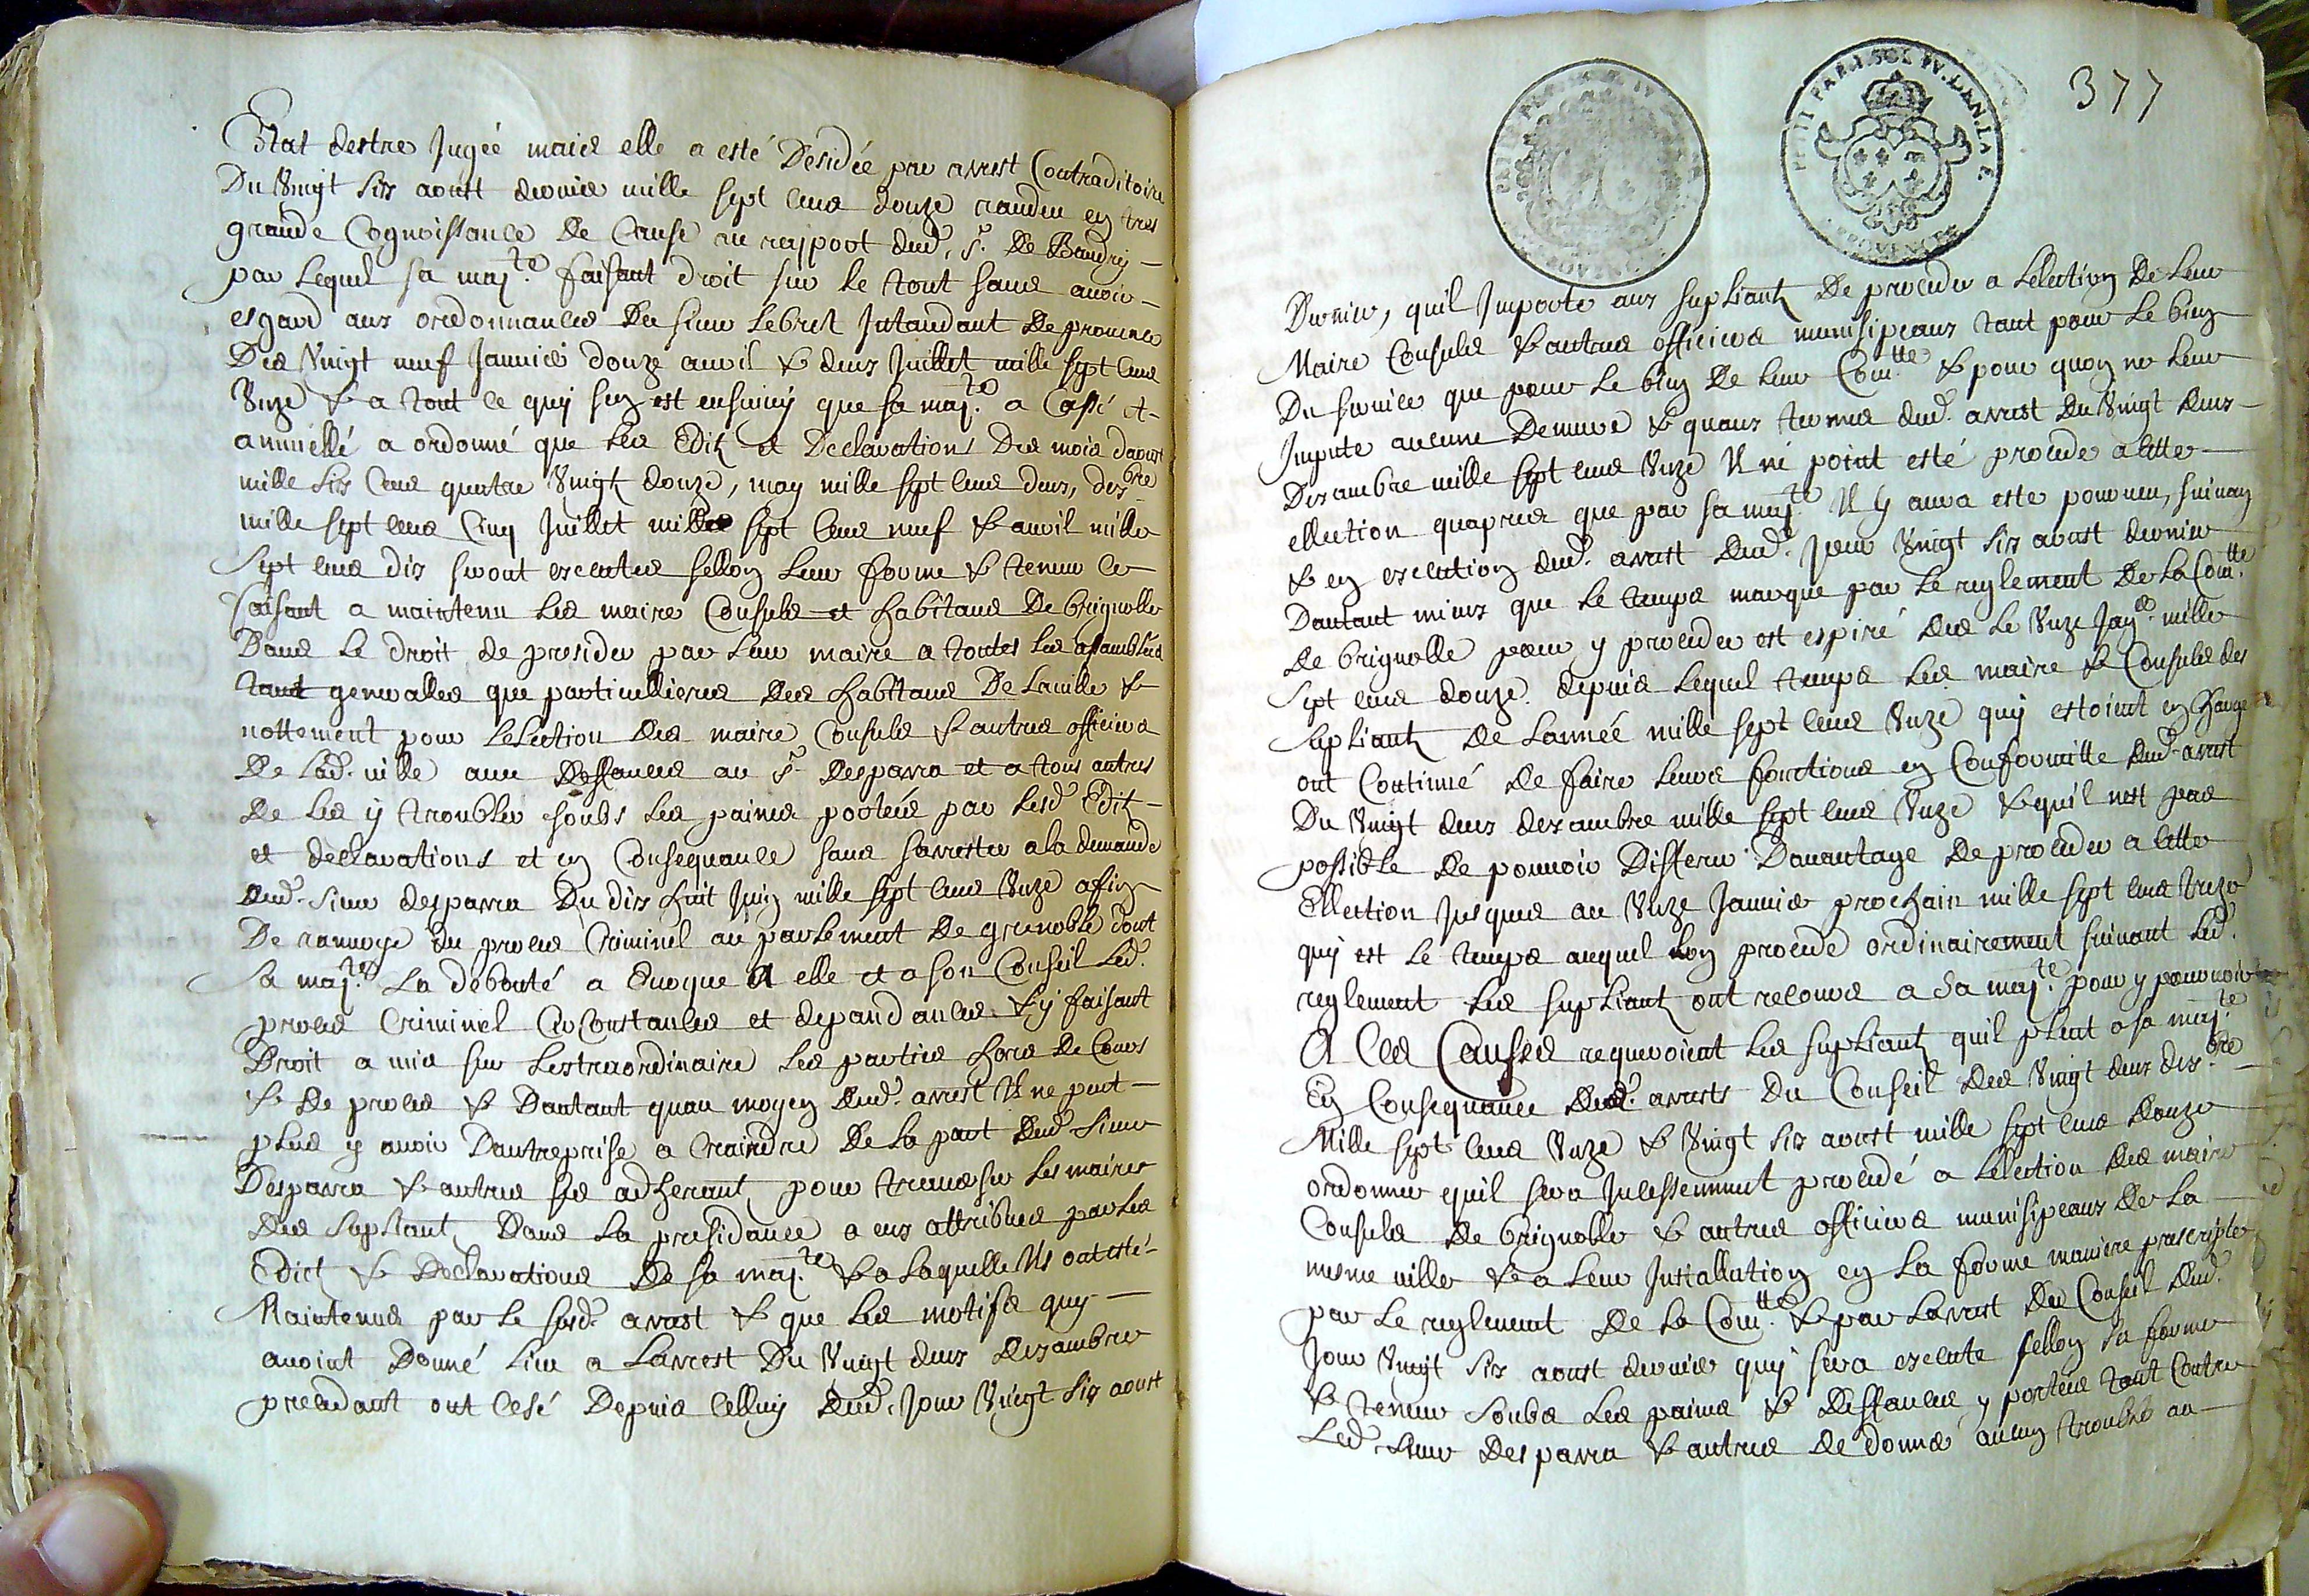 Estat destre Jugée mais elle a esté Desidée par arrest Contraditoire
Du Vingt six aoust dernier mille sept cens douze randeu en tres
grande Cognoissance De Cause au raport dud. sr. De Baudry
par Lequel sa majte. faisant droit sur le tout sans avoir
esgard aux ordonnances Du sieur Lebret Intandant De provence
Des Vingt neuf Janvier douze avril & deux Juillet mille sept cens
Unze & a tout ce quy sen est ensuivy que sa majte. a Cassé et
annullé a ordonné que Les Editz et Declarations Des mois daoust
mille six Cens quatre Vingtz douze, may mille sept cens deux, desbre
mille sept cens Cinq Juillet mille sept Cens neuf & avril mille
Sept cens dix seront executes sellon Leur forme & teneur Ce
faisant a maintenu Les maire Consuls et habitans De brignolle
Dans Le droit de presider par Leur maire a toutes Les assamblées
tant generalles que particullieres Des habitans De Laville &
nottement pour Lelection Des maire Consuls & autres officiers
De Lad. ville avec Deffances au sr. Desparra et a tous autres
De Les y troubler soubs Les paines portées par Lesd. Editz
et declarations et en Consequance sans sarrester a la demande
dud. sieur desparra Du dix huit Juin mille sept cens Unze afin
De ranvoye du proces Criminel au parlement De grenoble dont
Sa majte. La debouté a Evoque A elle et a son Conseil Led.
proces Criminel Circonstances et depandances & y faisant
Droit a mis sur Lextraordinaire Les parties hors De Cours
& De proces & Dautant quau moyen dud. arrest Il ne peut
plus y avoir Dantreprise a Craindre De La part dud. sieur
Desparra & autres ses adherant pour traverser Les maires
des supliant Dans La presidance a eux attribues par Les
Edict & Declarations De sa majte. & a Laquelle Ils ont esté
Maintenus par Le susd. arrest & que Les motifs quy
avoint Donné Lieu a Larrest Du Vingt deux Desambre
precedant ont Cesé Depuis Celluy dud. Jour Vingt six aoust
377
PETIT PAPA. SOL IV. DEN. LA F.
PROVENCE
Dernier, quil Importe aux supliantz De proceder a Lelection De Leur
Maire Consuls & autres officiers munisipeaux tant pour Le bien
Du service que pour Le bien De Leur Comtte. & pour quon ne Leur
Impute aucune Demure & quaux termes dud. arrest Du Vingt deux
Desambre mille sept cens Unze Il né point esté procede a cette
ellection quapres que par sa majte. Il y aura este pourveu, suivan
& en execution dud. arrest dud. Jour Vingt six aoust dernier
Dautant mieux que Le temps marque par Le reglement De La Comtte.
De brignolle pour y proceder est expiré des Le Unze Janer. mille
Sept cens douze. depuis Lequel temps Les maire & Consuls des
supliantz De Lannéé mille sept cens Unze quy estoient en charge
ont Continué De faire Leurs fonctions en Conformitte dud. arrest
Du Vingt deux desambre mille sept cens Unze & quil nest pas
possible De pouvoir Differer Davantage De proceder a cette
Ellection Jusques au Unze Janvier prochain mille sept cens treze
quy est Le temps auquel Lon procede ordinairement suivant Led.
reglement Les supliantz ont recours a Sa majte. pour y pourvoir
A Ces Causses requeroient Les supliantz quil pleut a sa majte.
En Consequance desd. arrests Du Conseil des Vingt deux desbre.
Mille sept cens Unze & Vingt six aoust mille sept cens douze
ordonner quil sera Incessemment procedé a Lelection des maire
Consuls De brignolle & autres officiers munisipeaux De La
mesme ville & a Leur Instalation en La forme maniere prescripte
par Le reglement De La Comtte. & par Larrest Du Conseil dud.
Jour Vingt six aoust dernier quy sera execute sellon sa forme
& teneur soubs Les paines & Deffances y portées tant Contre
Led. sieur Desparra & autres de donner aucun trouble au